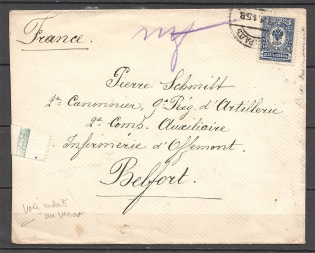 France.
Pierre Schmitt
2e Canonnier, 9e Rég. d'Artillerie
2e Comp. Auxiliaire
Infirmerie d'Offemont.
Belfort.
Voir cachet
au verso